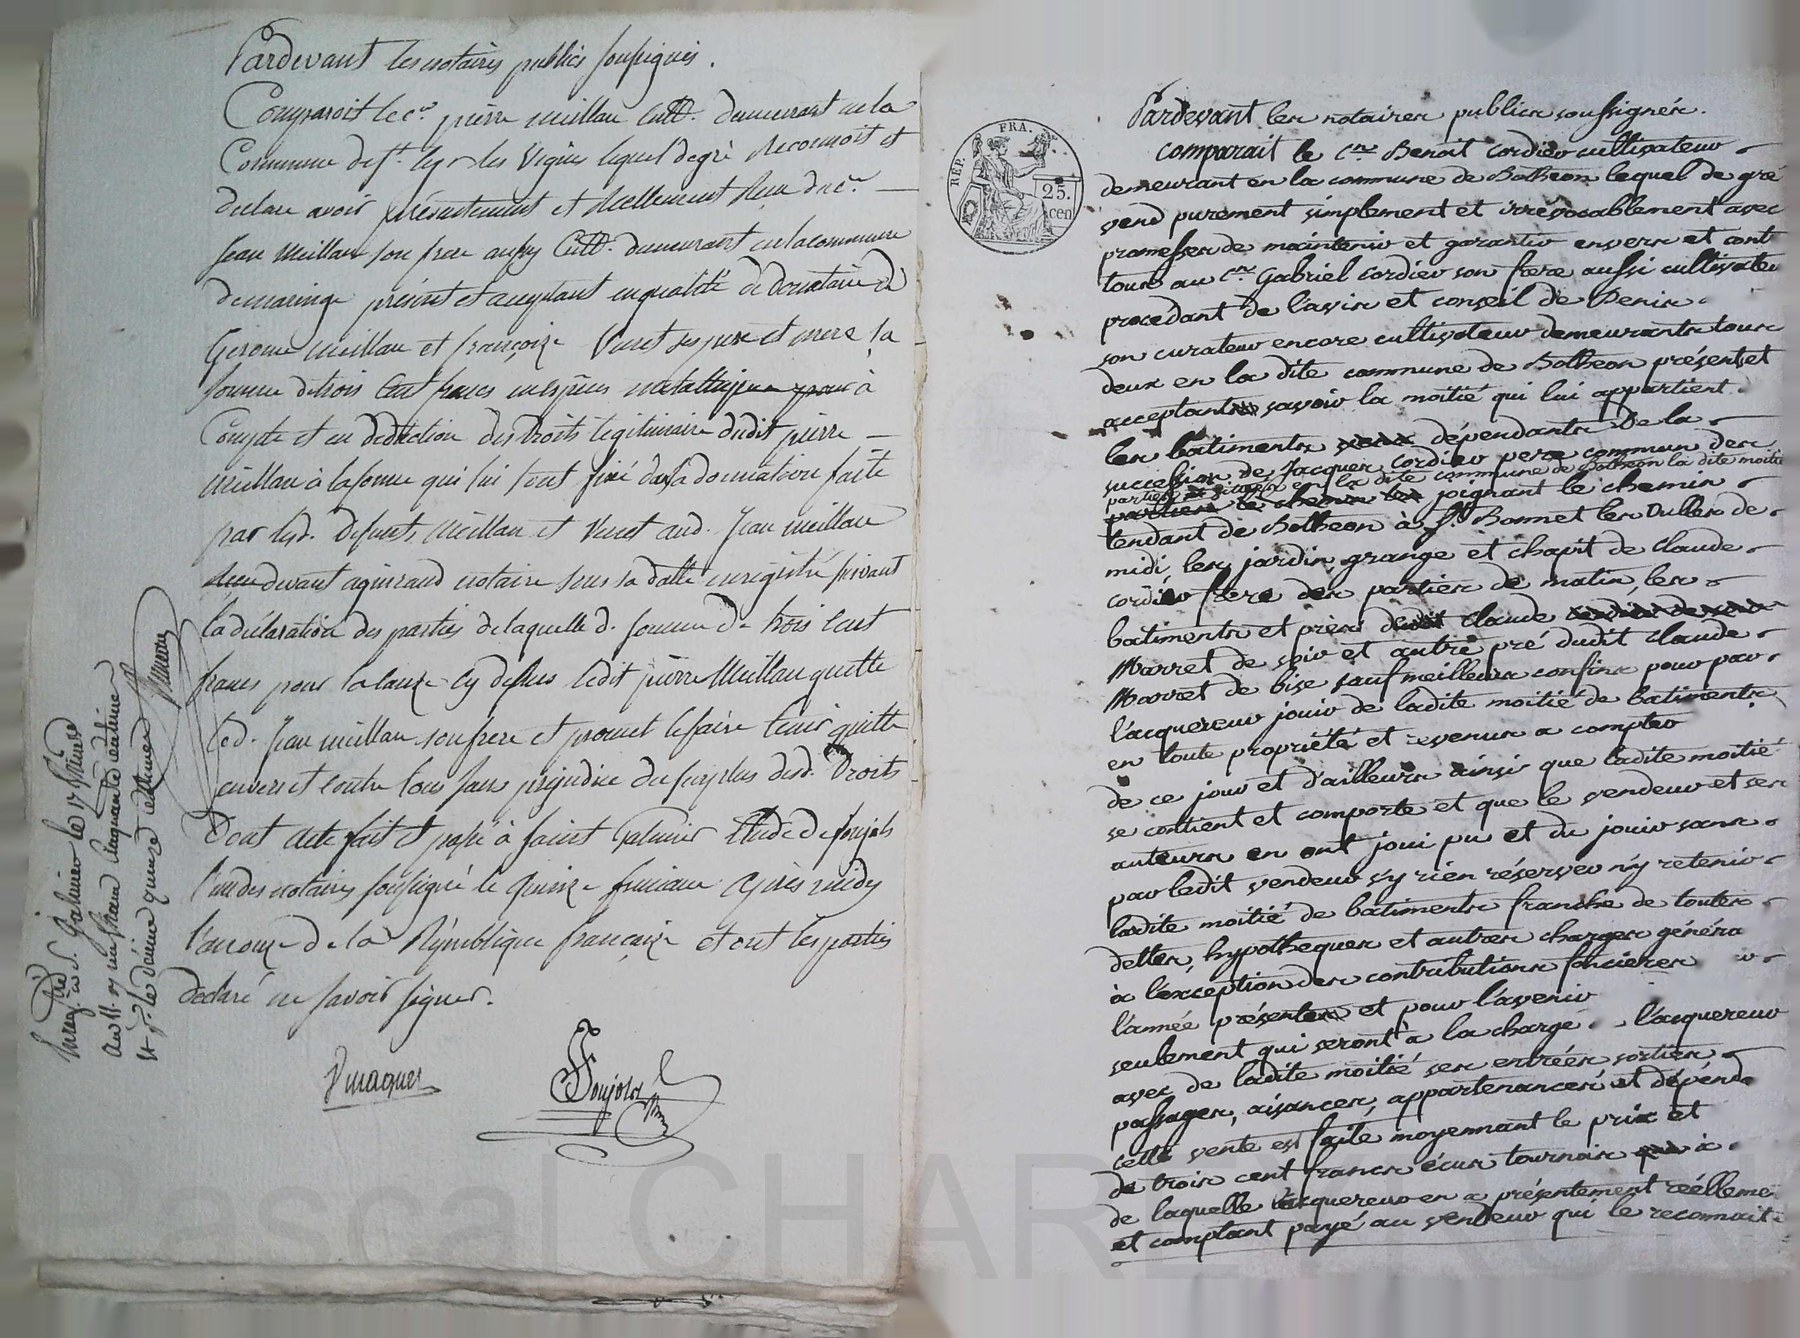 Pardevant les notaires publics soussignés.
Comparoit le c.en pierre meillau Cult. demeurant en la
Commune de s.t Cyr les Vignes lequel de gré Reconnoit et
declare avoir présentement et Reellement Reçu du c.en
Jean Meillau son frere aussy Cult. demeurant en la commune
de maringe présent et acceptant en qualité de donataire de
Gerome meillau et françoize Veuet ses pere et mere la
somme de trois Cent francs en espèces à
Compte et en déduction des droits légitimaire dudit pierre
Meillau à la somme qui lui sont fixé dans la donnation faite
par lesd. défunts Meillau et Veuet aud. Jean meillau
devant aguiraud notaire sous sa datte enregistré suivant
la déclaration des parties de laquelle d. somme de trois cent
francs pour la cause cy dessus ledit pierre Meillau quitte
led. Jean meillau son frere et promet le faire tenir quitte
envers et contre tous sans préjudice du surplus desd. Droits
Dont acte fait et passé à saint Galmier Etude de soujols
l'un des notaires soussigné le quinze frimaire après midy
l'an onze de la République françaize et ont les parties
déclaré ne savoir signer.
Enreg.tré à S. Galmier le 17 frimaire
an 11. Reçu un franc cinquante centime
et p.r le dixieme quinze centimes
Soujols
REP. FRA.
25. cen
Pardevant les notaires publics soussignés.
comparait le c.en Benoit cordier cultivateur
demeurant en la commune de Botheon lequel de gré
vend purement simplement et irrévocablement avec
promesses de maintenir et garantir envers et cont
tous au c.en Gabriel cordier son frere aussi cultivateu
procedant de l'avis et conseil de Denis
son curateur encore cultivateur demeurants tous
deux en la dite commune de Botheon présents et
acceptants savoir la moitié qui lui appartient
les batiments dépendants De la
succession de Jacques cordier pere commun des
parties et situés en la dite commune de Botheon la dite moitié
joignant le chemin
tendant de Botheon à S.t Bonnet les Oulles de
midi les jardin grange et chapit de claude
cordier frere des parties de matin, les
batiments et près de claude
Marret de soir et autre pré dudit claude
Marret de bise sauf meilleurs confins pour par
l'acquereur jouir de ladite moitié de batiments
en toute propriété et revenus a compter
de ce jour et d'ailleurs ainsi que ladite moitié
se contient et comporte et que le vendeur et ses
auteurs en ont joui pu et du jouir sans
par ledit vendeur s'y rien réserver n'y retenir
ladite moitié de batiments franche de toutes
dettes, hypotheques et autres charges généra
à l'exception des contributions foncieres
l'année présente et pour l'avenir
seulement qui seront à la charge l'acquereur
avec de ladite moitié ses entrées sorties
passages, aisances, appartenances et dépend
cette vente est faite moyennant le prix et
de trois cent francs écus tournois à
de laquelle l'acquereur en a présentement réélleme
et comptant payé au vendeur qui le reconnait
Pascal CHAREYRON